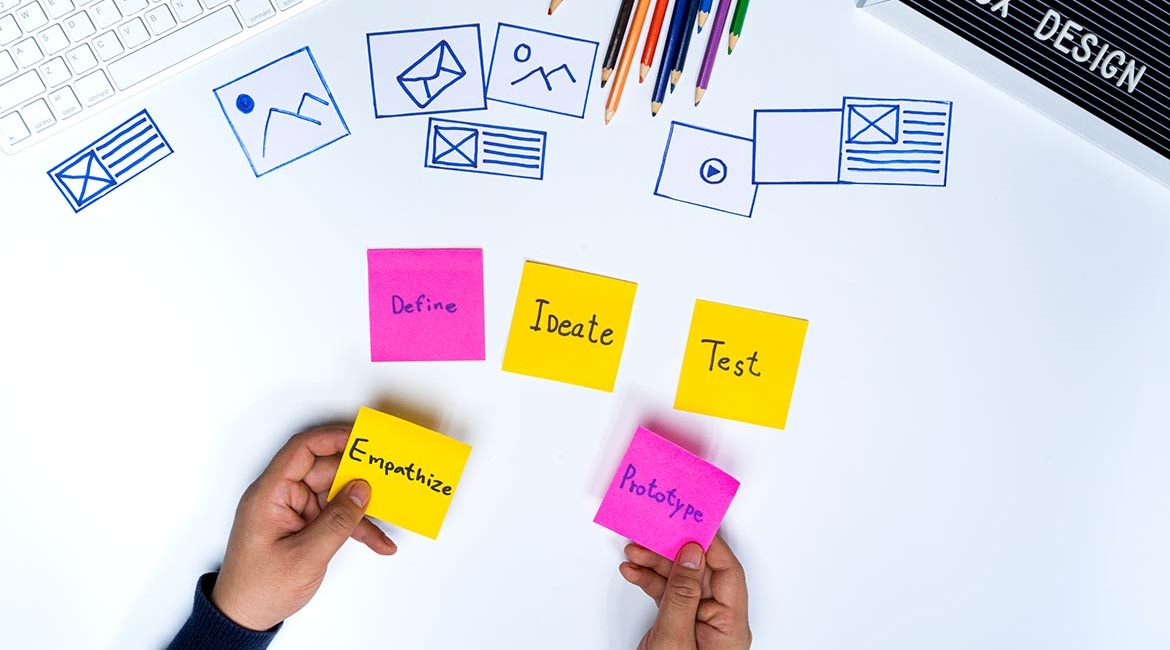 DESIGN
Define
IDeate
Test
Empathize
Prototype